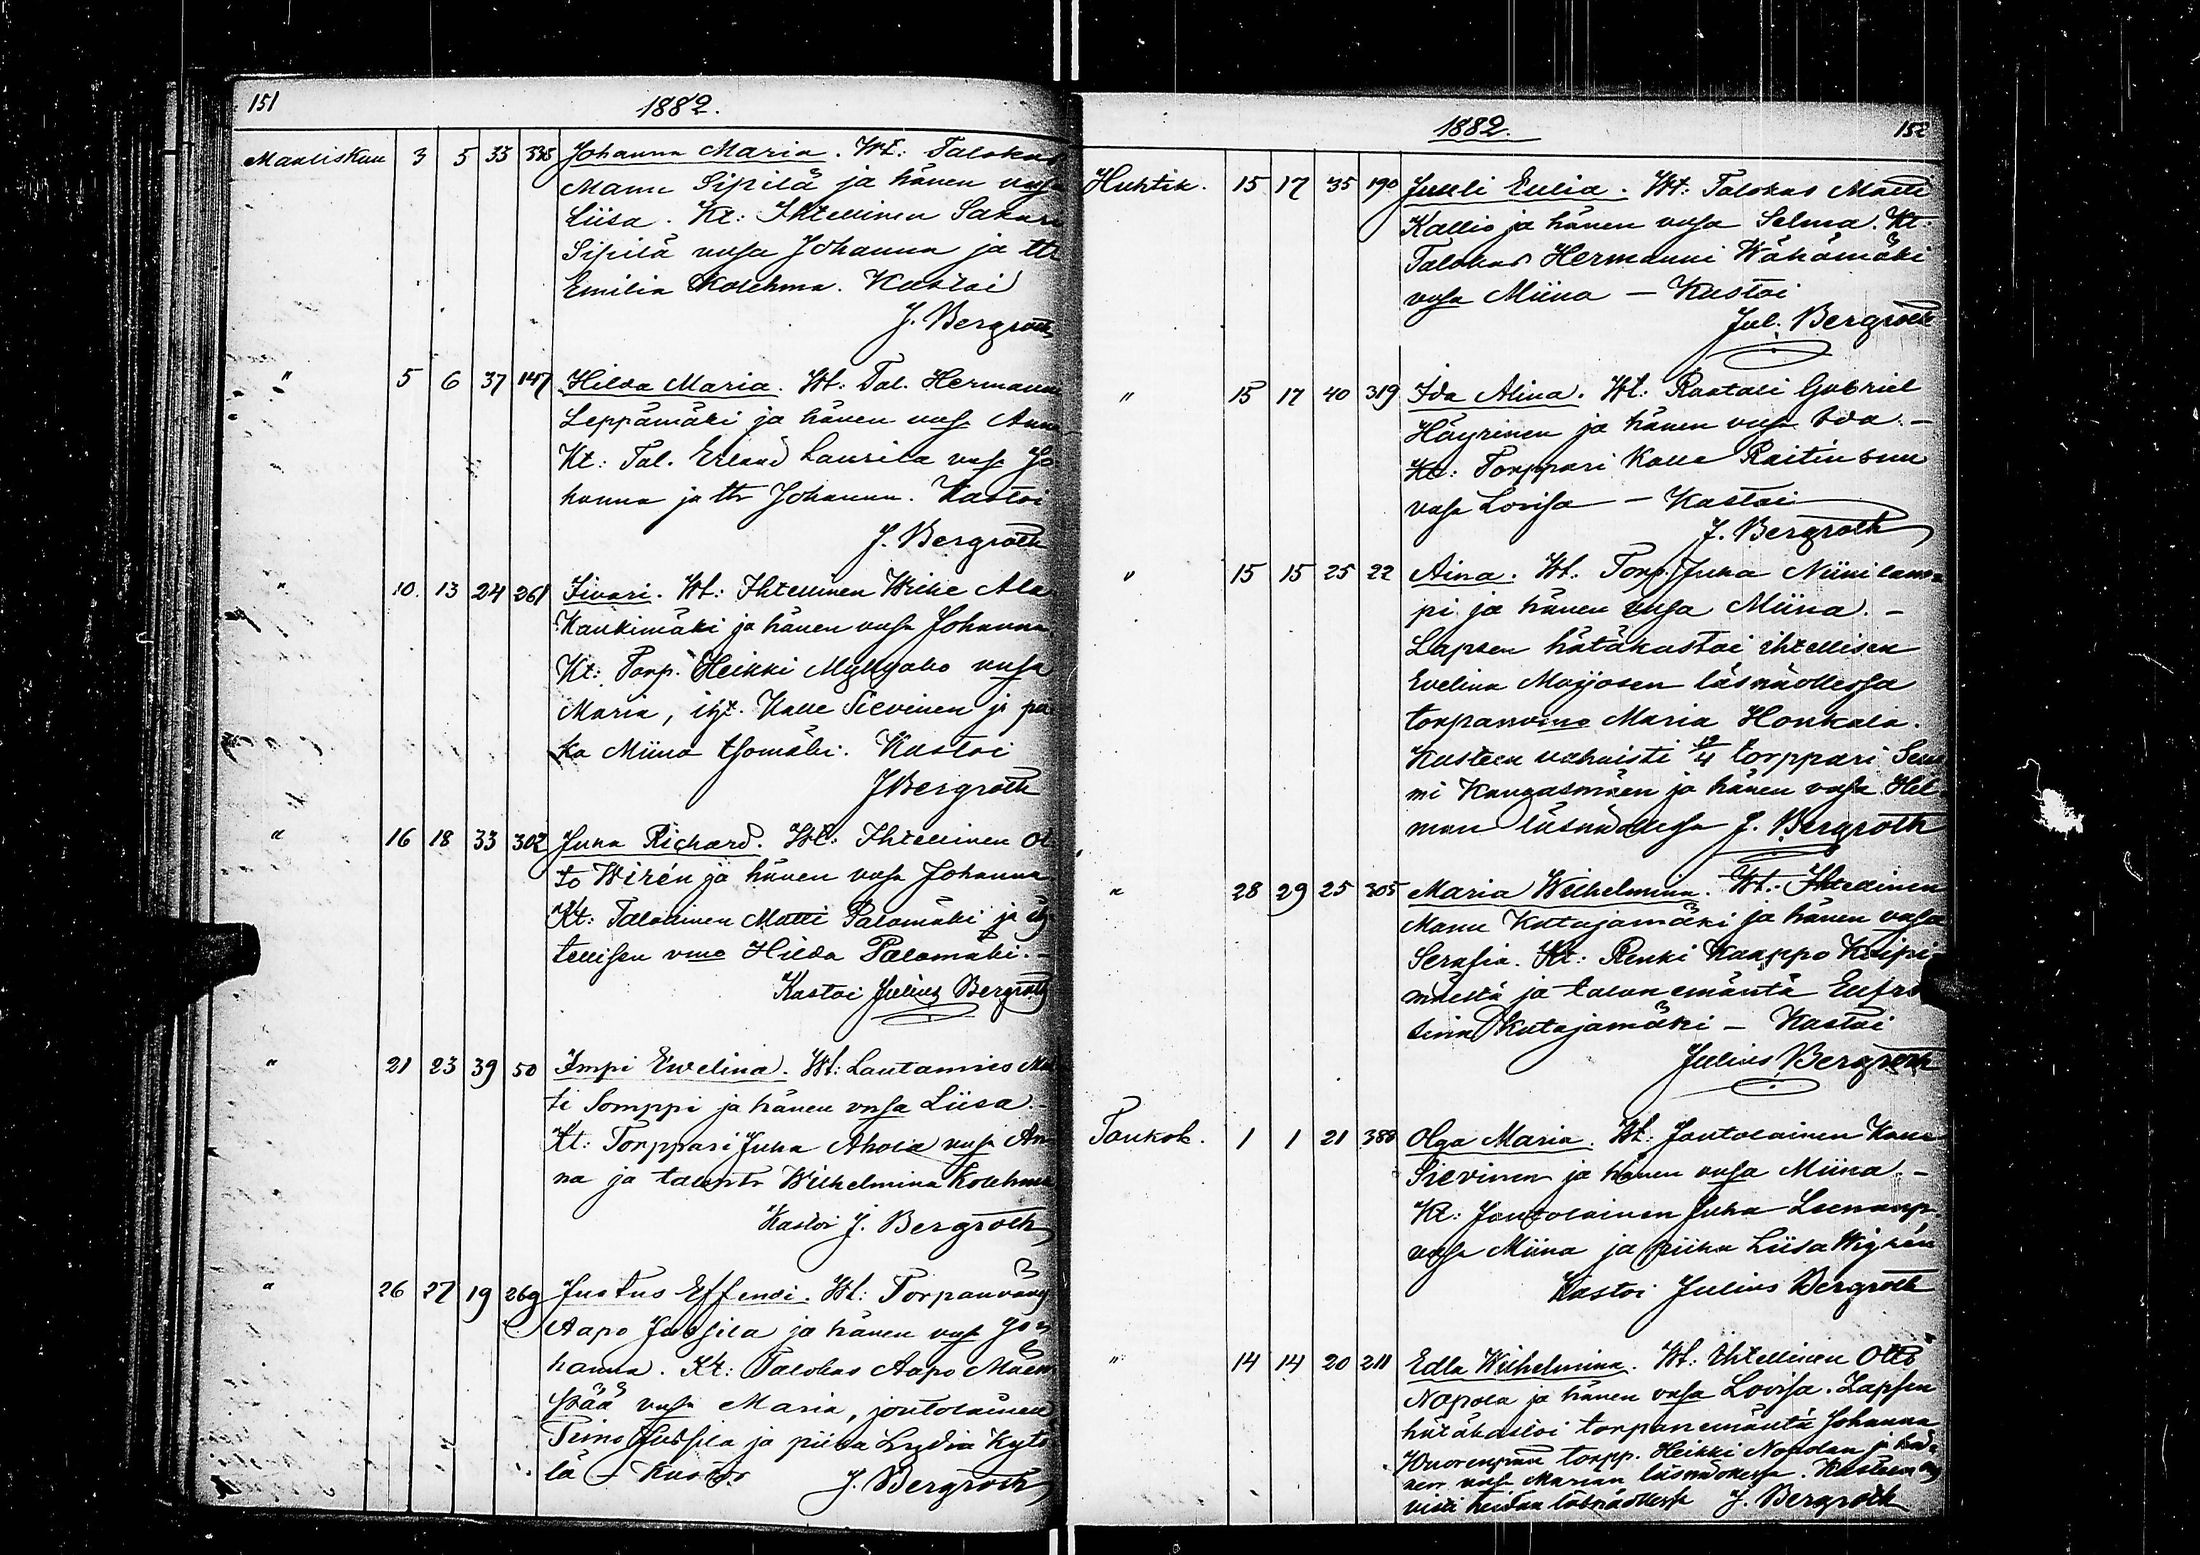 151
1882.
Maaliskuu 3 5 33 338 Johanna Maria. Wt: Talokas
Manu Sipilä ja hänen vaja
Liisa. Kt: Ihtellinen Sakari
Sipilä vaja Johanna ja ttr
Emilia Kolehma. Kastoi
J. Bergroth
" 5 6 37 147 Hilda Maria. Wt: Tal. Hermanni
Leppämäki ja hänen vaja Anna
Kt: Tal. Erland Laurila vaja Jo
hanna ja ttr Johanna. Kastoi
J. Bergroth
" 10 13 24 261 Iivari. Wt: Ihtellinen Wilhe Ala
Kaukimäki ja hänen vaja Johanna.
Kt: Torp. Heikki Myllyaho vaja
Maria, iht. Kalle Sievinen ja pii
ka Miina Isomäki. Kastoi
J Bergroth
" 16 18 33 302 Juha Richard. Wt: Ihtellinen Ot
to Wirén ja hänen vaja Johanna
Kt: Talollinen Matti Palomäki ja ih
tellisen vmo Hilda Palomäki. -
Kastoi Julius Bergroth
" 21 23 39 50 Impi Ewelina. Wt: Lautamies Mat
ti Somppi ja hänen vaja Liisa. -
Kt: Torppari Juha Ahola vaja An
na ja talontr Wilhelmina Kolehma
Kastoi J. Bergroth
" 26 27 19 269 Justus Effendi. Wt: Torpanvävy
Aapo Jussila ja hänen vaja Jo
hanna. Kt: Talokas Aapo Mäen
pää vaja Maria, joutolainen
Teimo Jussila ja piika Lydia Kytö
lä - Kastoi
J. Bergroth
1882.
152
Huhtik. 15 17 35 190 Juuli Eulia. Wt: Talokas Matti
Kallio ja hänen vaja Selma. Kt:
Talokas Hermanni Wähämäki
vaja Miina - Kastoi
Jul. Bergroth
" 15 17 40 319 Ida Alina. Wt: Raatali Gabriel
Häyrinen ja hänen vaja Ida. -
Kt: Torppari Kalle Raitin
vaja Lovisa - Kastoi
J. Bergroth
" 15 15 25 22 Aina. Wt: Torp. Juha Niinilam-
pi ja hänen vaja Miina. -
Lapsen hätäkastoi ihtellisen
Evelina Maijasen läsnäollessa
torpanvmo Maria Honkala.
Kasteen vahvisti 19/4 torppari Sam
mi Kangasmäen ja hänen vaja Hel
man läsnäollessa J. Bergroth
" 28 29 25 305 Maria Wilhelmina. Wt: Ihtellinen
Manu Katajamäki ja hänen vaja
Serafia. Kt: Renki Kaappo Knipi
mäeltä ja talon emäntä Eufro
sina Katajamäki - Kastoi
Julius Bergroth
Toukok. 1 1 21 388 Olga Maria. Wt: Joutolainen Kalle
Sievinen ja hänen vaja Miina. -
Kt: Joutolainen Juha Leenanp.
vaja Miina ja piika Liisa Wigrén
Kastoi Julius Bergroth
" 14 14 20 211 Edla Wilhelmina. Wt: Ihtellinen Otto
Napola ja hänen vaja Lovisa. Lapsen
hätäkastoi torpanemäntä Johanna
Wuorenpää torpp. Heikki Napolan ja hä
nen vaja Marian läsnäollessa. Kasteen vah
visti heidän läsnäollessa J. Bergroth